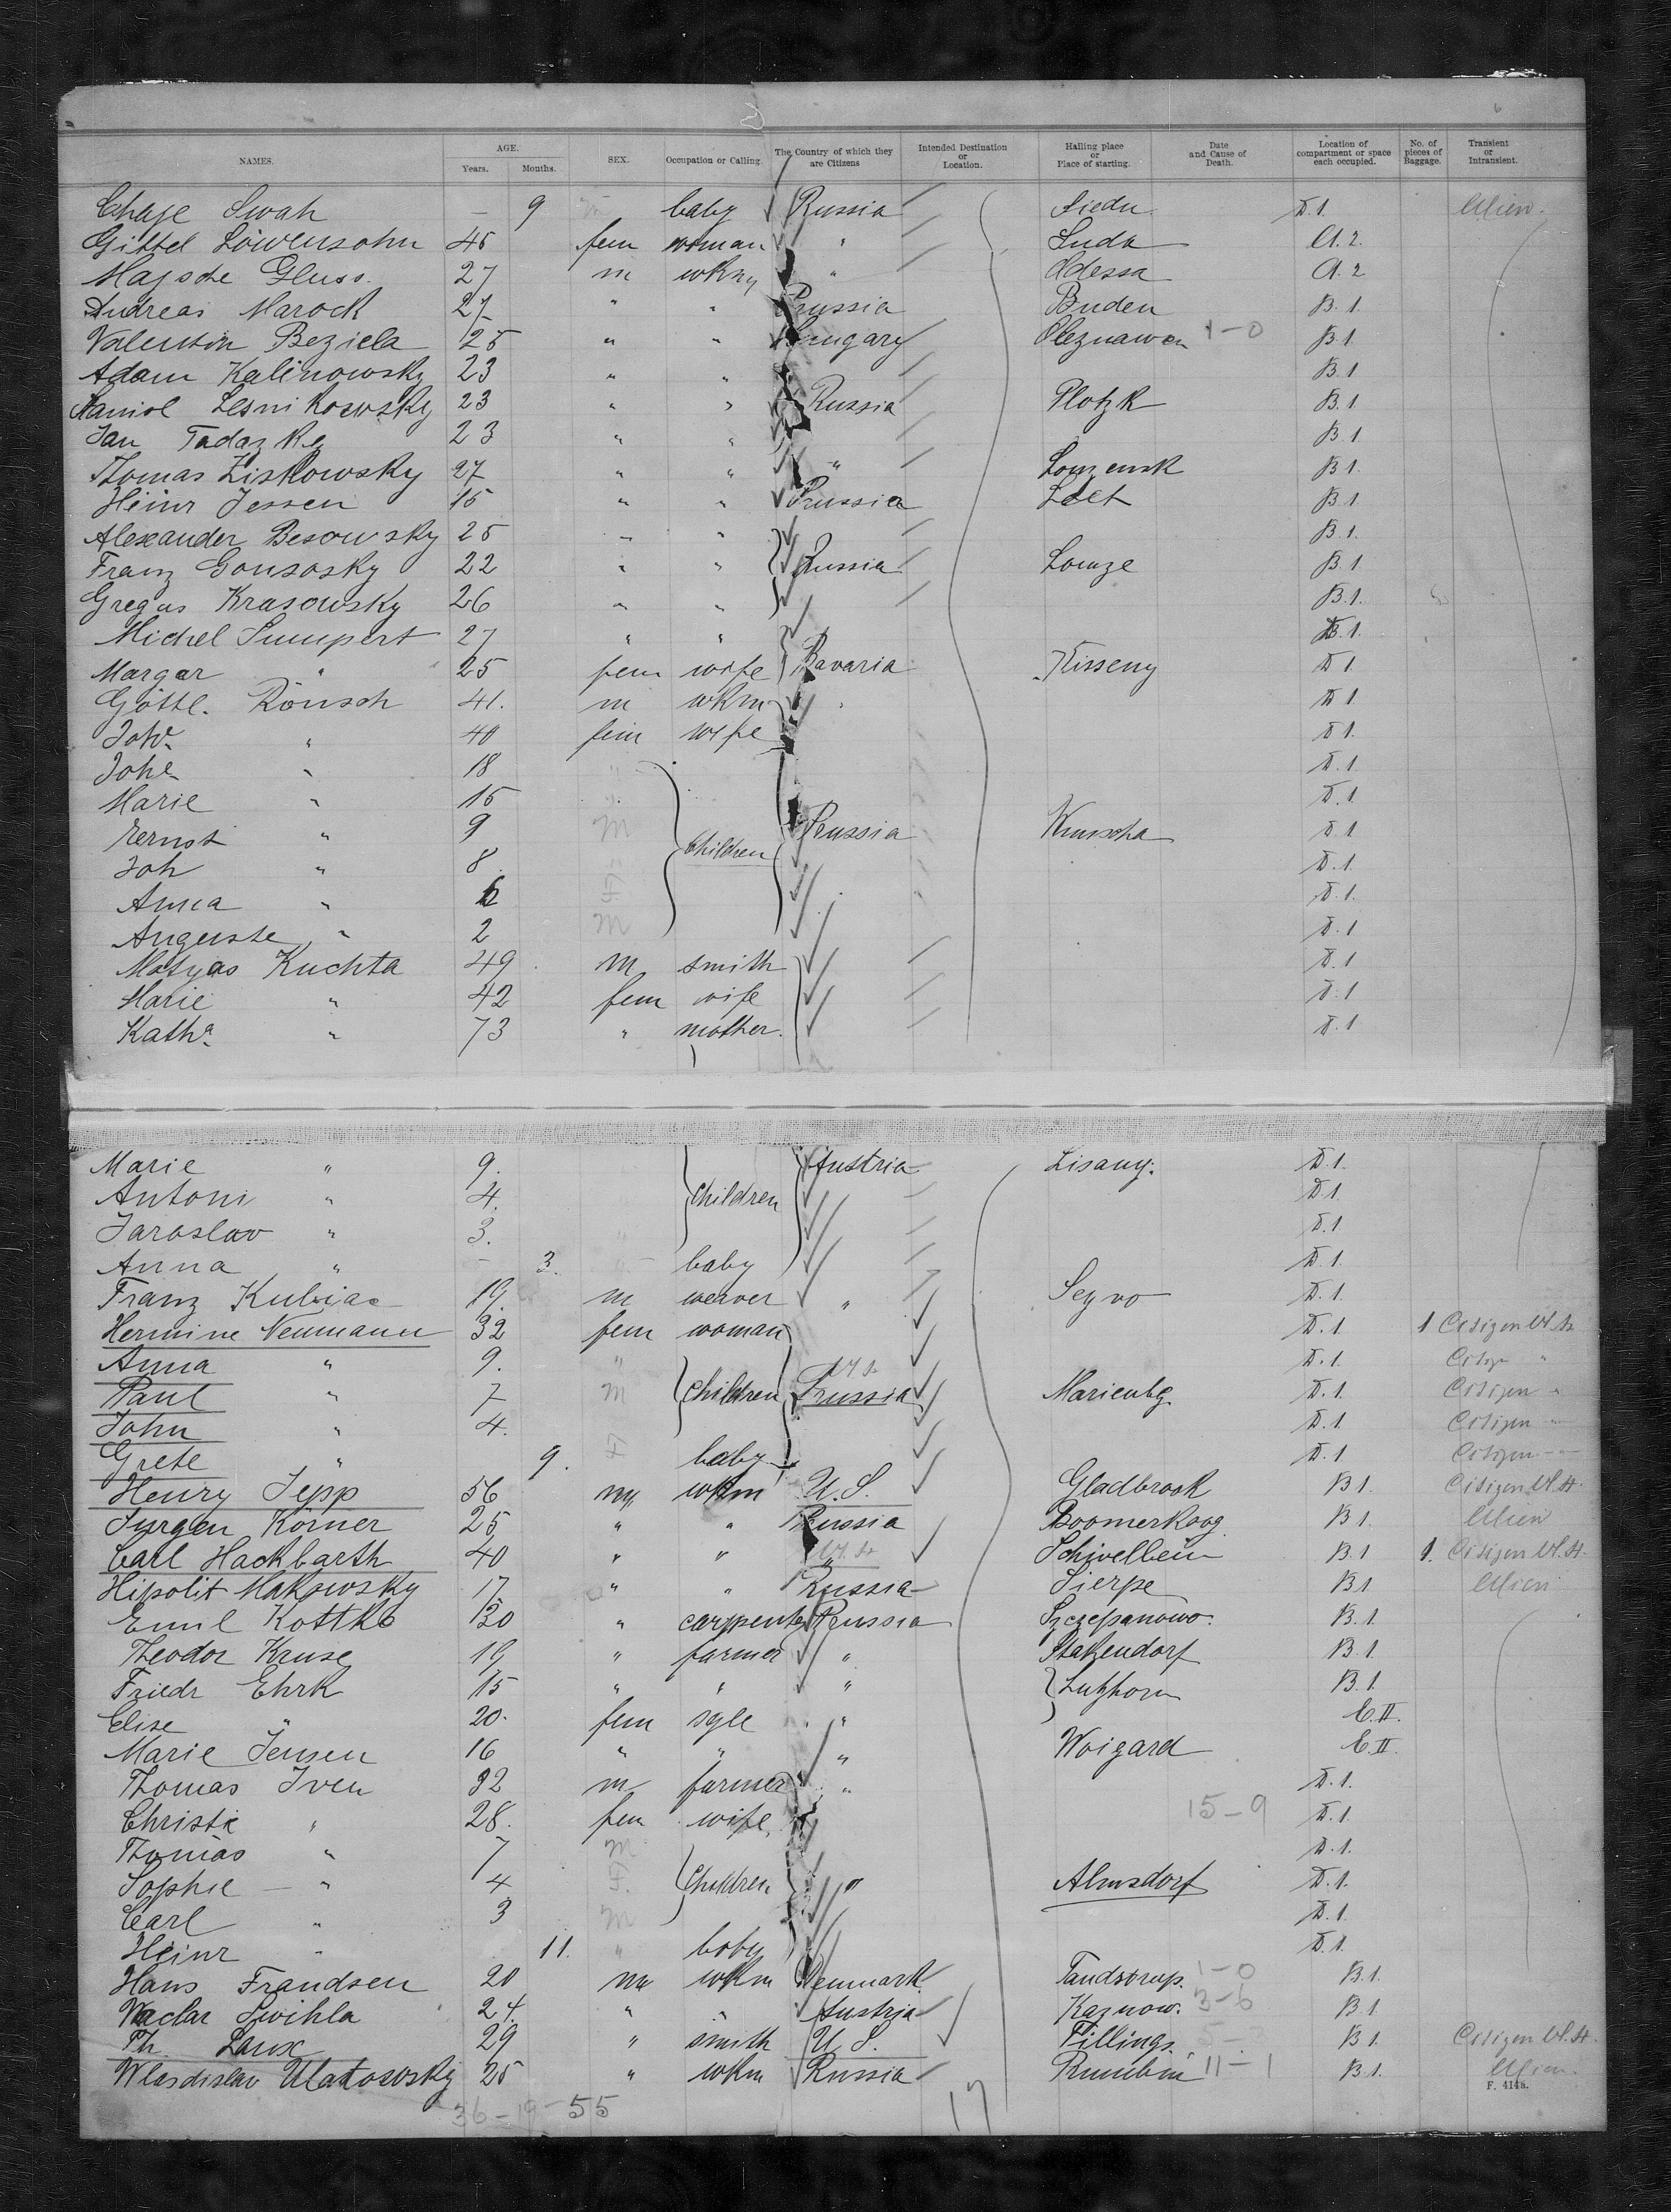 6
NAMES. AGE. Years. Months. SEX. Occupation or Calling. The Country of which they are Citizens Intended Destination or Location. Hailing place or Place of starting. Date and Cause of Death. Location of compartment or space each occupied. No. of pieces of Baggage. Transient or Intransient.
Chaje Swah — 9 baby Russia D.1. Alien.
Gittel Löwensohn 45 fem woman " Luda A.2.
Majsche Gluss. 27 m wkm " Odessa A.2
Andreas Marock 27 " " Prussia Buden B.1.
Valentin Beziela 25 " " Hungary 1-0 B.1
Adam Kalinowsky 23 " " B.1
Lesnikowsky 23 " " Russia Plotzk B.1
Jan 23 " " B.1
Thomas Ziskowsky 27 " " " B.1.
Heinr Jessen 15 " " Prussia B.1
Alexander Besowsky 25 " " B.1.
Franz Gonsosky 22 " " Russia Lomze B.1
Gregus Krasowsky 26 " " B.1.
Michel Sumpert 27 " " D.1.
Margar " 25 fem wife Bavaria Kisseny D 1
Göttl. Rönsch 41. m wkm D 1
Joha " 40 fem wife D 1.
Johe " 18 " D.1
Marie " 15 " D.1
Ernst " 9 M Children Prussia Kruscha D 1
Joh " 8. " D.1
Anna " 6 F D.1.
Auguste " 2 M D.1
Matyas Kuchta 49 m smith D.1
Marie " 42 fem wife D.1
Katha " 73 " mother. D.1
Marie " 9. Austria Lisany. D.1.
Antoni " 4. children D.1
Jaroslav " 3. D.1.
Anna " — 3. baby D.1.
Franz Kubiac 19. m weaver " Segno D.1.
Hermine Neumann 32 fem woman D.1 1 Citizen U.St.
Anna " 9. " D.1.
Paul " 7 M children U St. Prussia Marienbg. D.1. Citizen "
John " 4. D.1. Citizen
Grete " 9. F baby D.1 Citizen
Henry Jepp 56 m wkm U.S. Gladbrook B 1. Citizen U.St.
Jurgen Körner 25 " " Prussia Boomerkoog B 1. Alien
Carl Hackbarth 40 " " U.St. Schivelbein B.1 1. Citizen U.St.
Hipolit Makowsky 17 " " Russia Sierpe B 1 Alien
Emil Kottke 30 " carpenter Prussia Szczepanowo. B.1.
Theodor Kruse 19 " farmer " Stakendorf B.1
Friedr Ehrk 15 " " " Lutzhorn B.1
Elise " 20. fem sgle " C.II.
Marie Jensen 16 " " " Woigard C.II.
Thomas Iven 32 m farmer " D.1.
Christe " 28. fem wife 15-9 D.1.
Thomas " 7 M D.1.
Sophie — " 4 F. Children " Almsdorf D.1.
Carl " 3 M D.1.
Heinr " 11. " baby D.1.
Hans Frandsen 20 m wkm Denmark Tandsorup. 1-0 B.1.
Waclar Swihla 24. " " Austria Kaznow. 3-6 B 1
Th. Laux 29 " smith U S. Fillings. 5- B 1. Citizen U.St.
Wladislav Ulatowsky 25 " wkm Russia 11-1 B.1. Alien.
F. 414a.
36-19-55 17